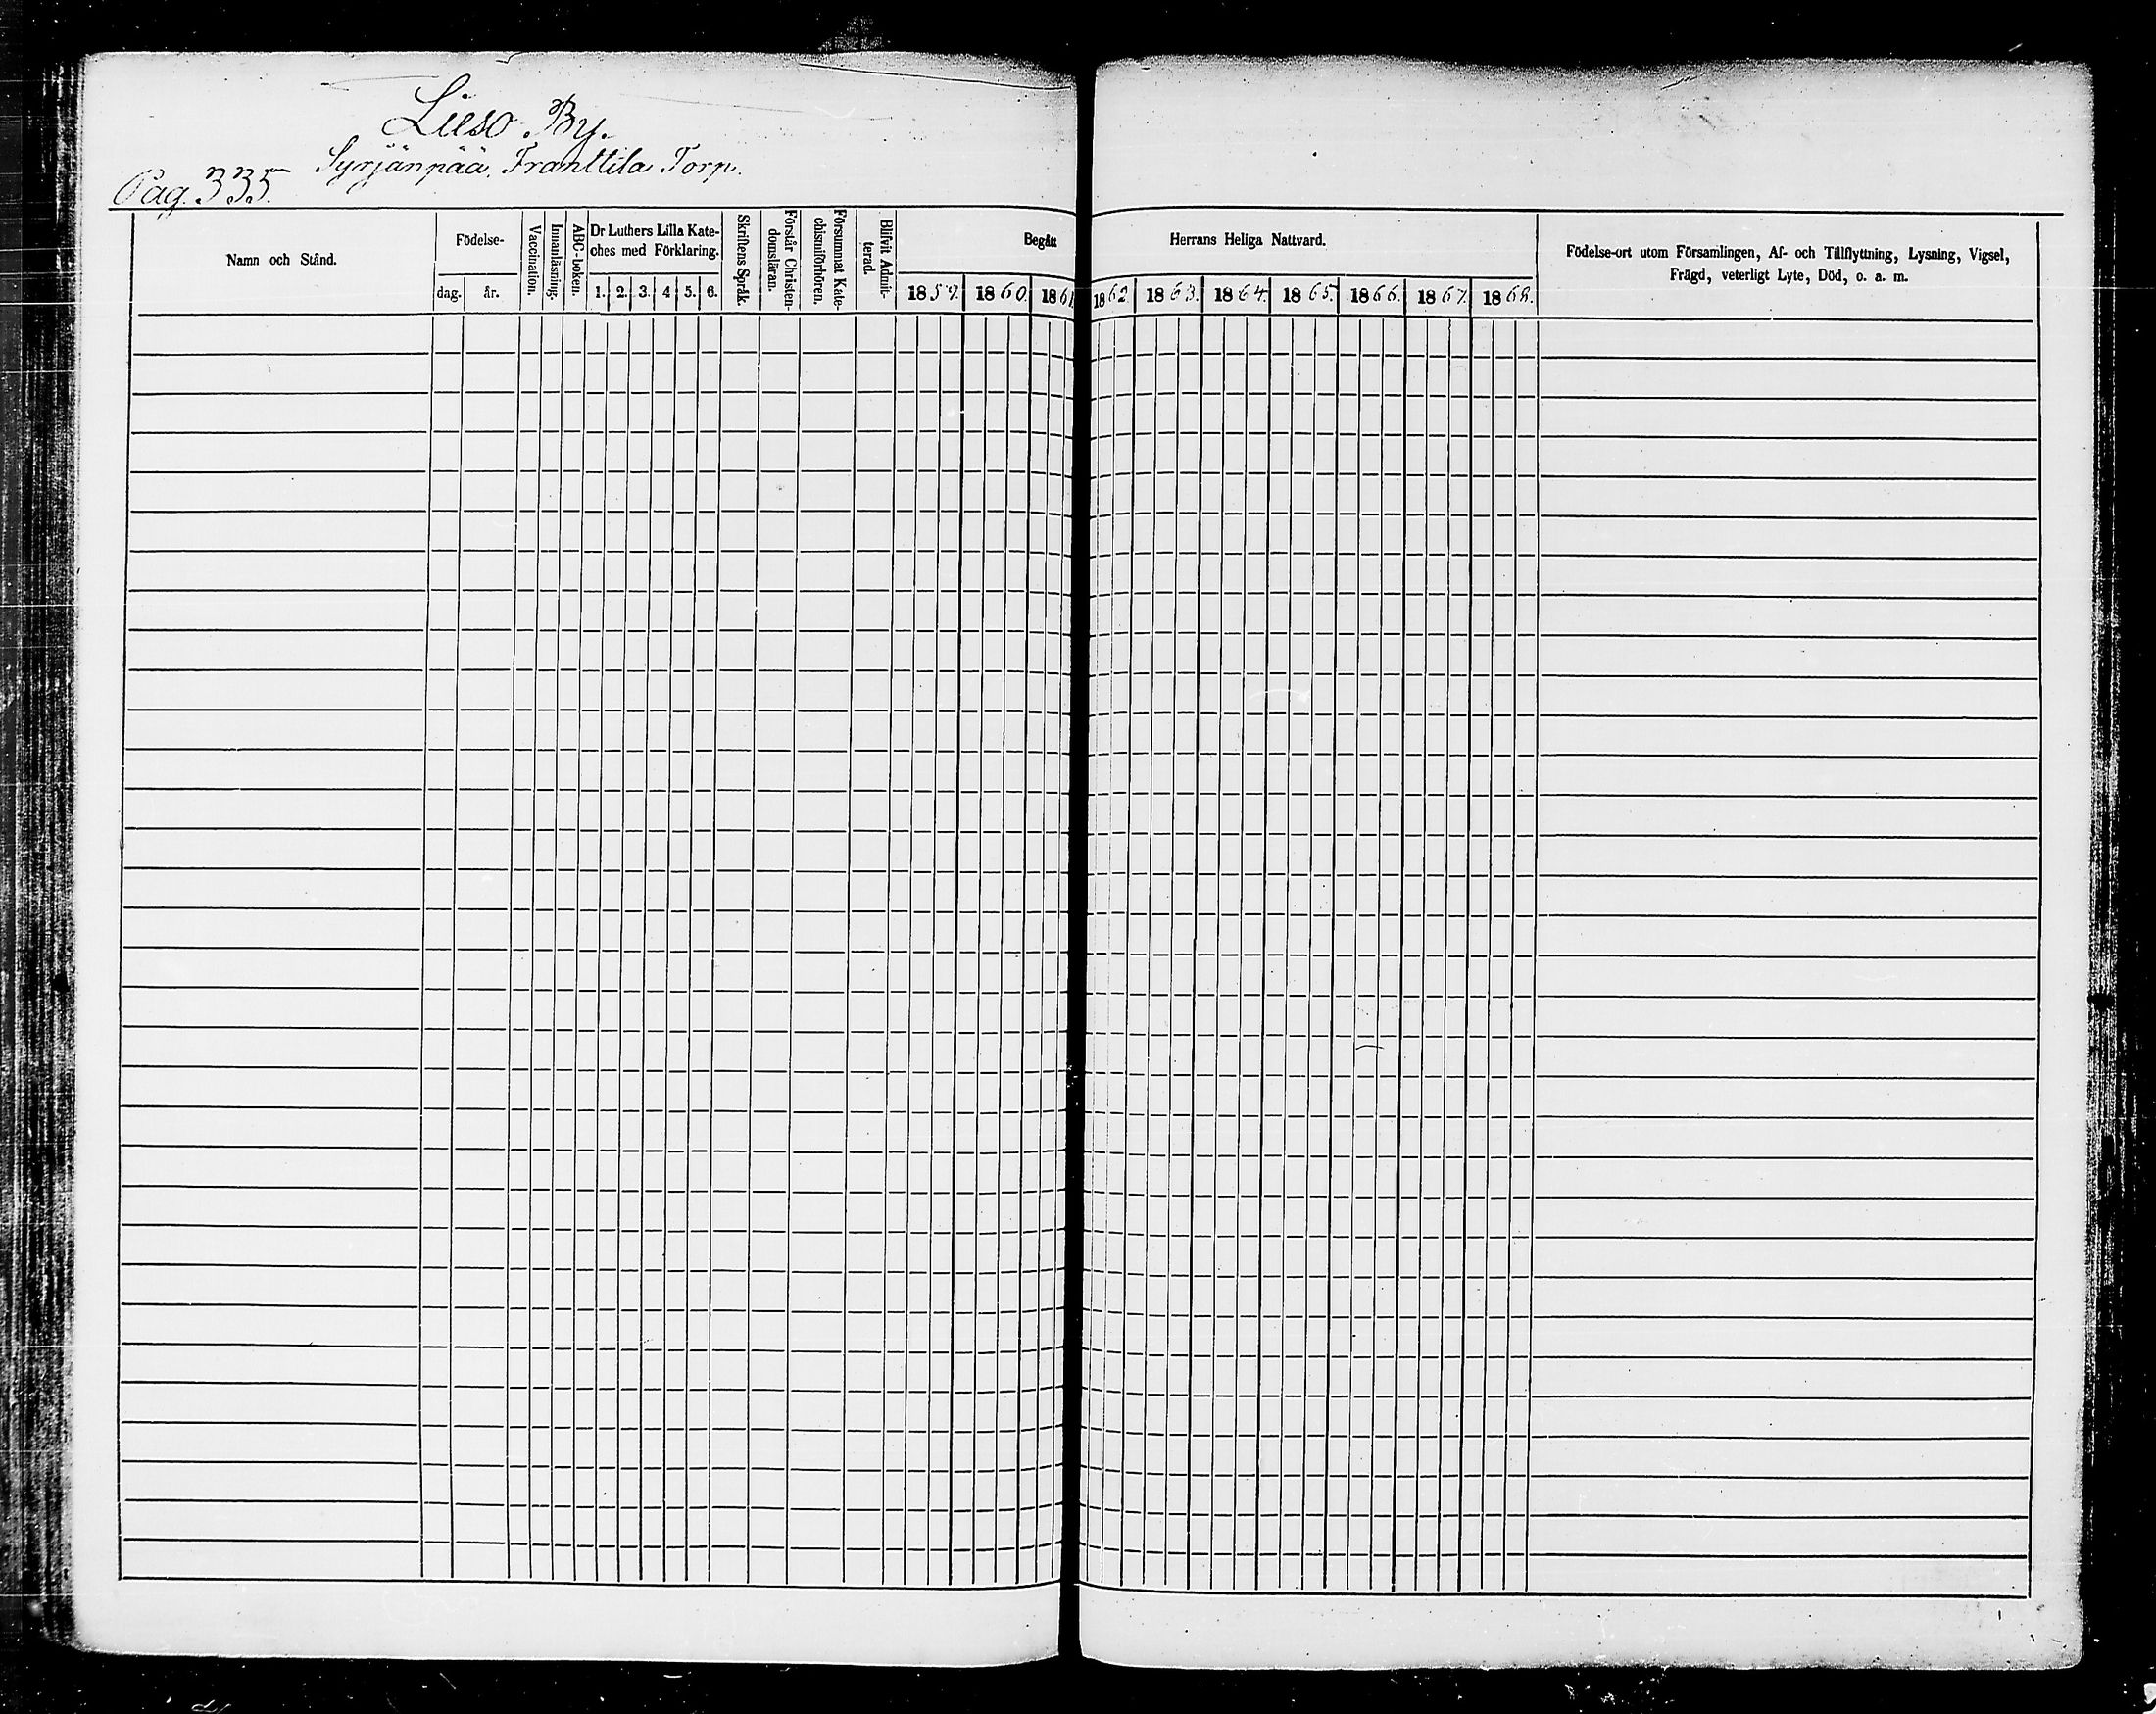 Lieso By.
Syrjänpää, Franttila Torp.
Pag. 335.
Namn och Stånd.
Födelse-
dag. år.
Vaccination.
Innanläsning.
ABC-boken.
Dr Luthers Lilla Kate-
ches med Förklaring.
1. 2. 3. 4 5. 6.
Skriftens Språk.
Förstår Christen-
domsläran.
Försummat Kate-
chismiförhören.
Blifvit Admit-
terad.
Begått Herrans Heliga Nattvard.
1859. 1860. 1861. 1862. 1863. 1864. 1865. 1866. 1867. 1868.
Födelse-ort utom Församlingen, Af- och Tillflyttning, Lysning, Vigsel,
Frägd, veterligt Lyte, Död, o. a. m.